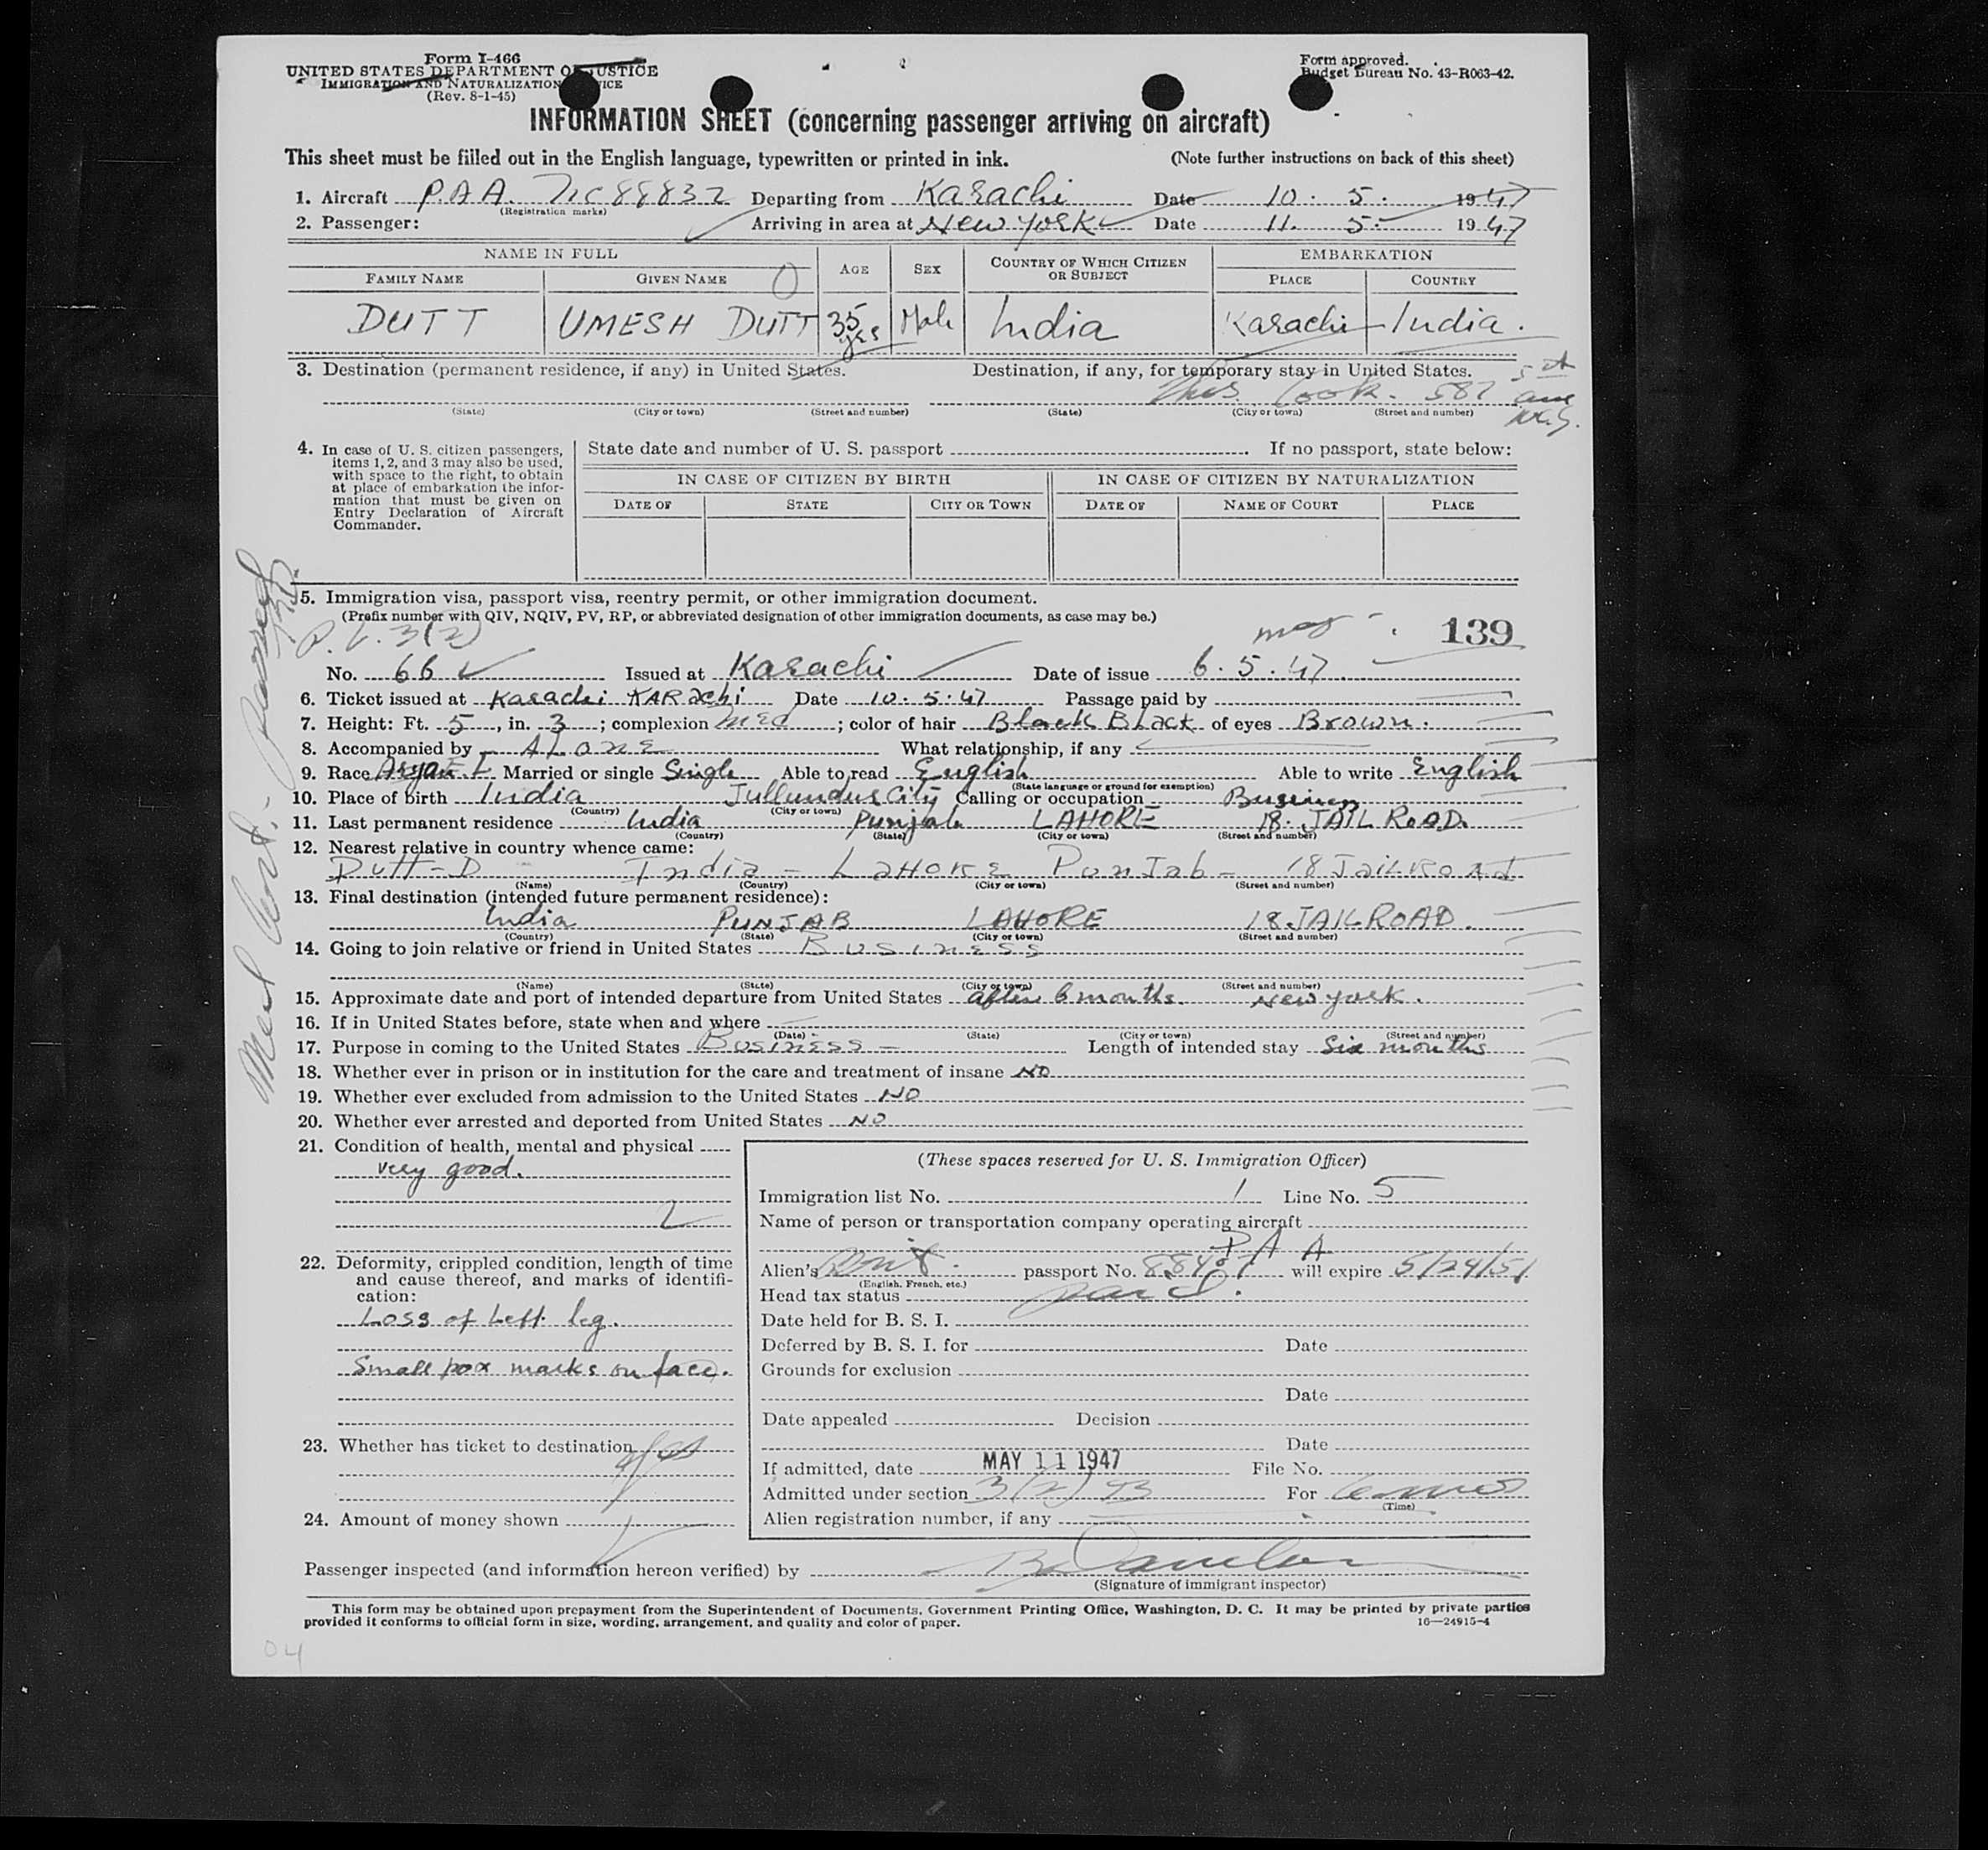 Form I-466
UNITED STATES DEPARTMENT OF JUSTICE
IMMIGRATION AND NATURALIZATION SERVICE
(Rev. 8-1-45)
Form approved.
Budget Bureau No. 43-R063-42.
INFORMATION SHEET (concerning passenger arriving on aircraft)
This sheet must be filled out in the English language, typewritten or printed in ink. (Note further instructions on back of this sheet)
1. Aircraft P.A.A. NC88832 Departing from Karachi Date 10.5.1947
(Registration marks)
2. Passenger: Arriving in area at New York Date 11.5.1947
NAME IN FULL AGE SEX COUNTRY OF WHICH CITIZEN OR SUBJECT EMBARKATION
FAMILY NAME GIVEN NAME PLACE COUNTRY
DUTT UMESH DUTT 35 yrs Male India Karachi India.
3. Destination (permanent residence, if any) in United States. Destination, if any, for temporary stay in United States.
Thos. Cook. 587 5th ave N.Y.
(State) (City or town) (Street and number) (State) (City or town) (Street and number)
4. In case of U. S. citizen passengers, items 1, 2, and 3 may also be used, with space to the right, to obtain at place of embarkation the information that must be given on Entry Declaration of Aircraft Commander.
State date and number of U. S. passport . If no passport, state below:
IN CASE OF CITIZEN BY BIRTH IN CASE OF CITIZEN BY NATURALIZATION
DATE OF STATE CITY OR TOWN DATE OF NAME OF COURT PLACE
5. Immigration visa, passport visa, reentry permit, or other immigration document.
(Prefix number with QIV, NQIV, PV, RP, or abbreviated designation of other immigration documents, as case may be.)
P.V. 3(2) 139
No. 66 Issued at Karachi Date of issue 6.5.47.
6. Ticket issued at Karachi KARachi Date 10.5.47 Passage paid by
7. Height: Ft. 5, in. 3; complexion Med; color of hair Black Black of eyes Brown.
8. Accompanied by - ALONE What relationship, if any
9. Race Aryan E.I. Married or single Single Able to read English Able to write English
(State language or ground for exemption)
10. Place of birth India Jullundur City Calling or occupation Business
(Country) (City or town)
11. Last permanent residence India Punjab LAHORE 18. JAIL ROAD.
(Country) (State) (City or town) (Street and number)
12. Nearest relative in country whence came:
Dutt-D India - LAHORE PunJab - 18 JAIL ROAD
(Name) (Country) (City or town) (Street and number)
13. Final destination (intended future permanent residence):
India PUNJAB LAHORE 18 JAIL ROAD.
(Country) (State) (City or town) (Street and number)
14. Going to join relative or friend in United States BUSINESS
(Name) (State) (City or town) (Street and number)
15. Approximate date and port of intended departure from United States after 6 months. New York.
16. If in United States before, state when and where
(Date) (State) (City or town) (Street and number)
17. Purpose in coming to the United States BUSINESS - Length of intended stay Six months
18. Whether ever in prison or in institution for the care and treatment of insane NO
19. Whether ever excluded from admission to the United States NO
20. Whether ever arrested and deported from United States NO
21. Condition of health, mental and physical
very good.
22. Deformity, crippled condition, length of time and cause thereof, and marks of identification:
Loss of Left leg.
Small pox marks on face.
23. Whether has ticket to destination yes
24. Amount of money shown
(These spaces reserved for U. S. Immigration Officer)
Immigration list No. 1 Line No. 5
Name of person or transportation company operating aircraft
P A A
Alien's Brit. passport No. will expire 5/24/51
(English, French, etc.)
Head tax status
Date held for B. S. I.
Deferred by B. S. I. for Date
Grounds for exclusion
Date
Date appealed Decision
Date
If admitted, date MAY 11 1947 File No.
Admitted under section 3(2) B For 6 mos
(Time)
Alien registration number, if any
Passenger inspected (and information hereon verified) by
(Signature of immigrant inspector)
This form may be obtained upon prepayment from the Superintendent of Documents, Government Printing Office, Washington, D. C. It may be printed by private parties
provided it conforms to official form in size, wording, arrangement, and quality and color of paper. 16—24915-4
04
Med Cert.